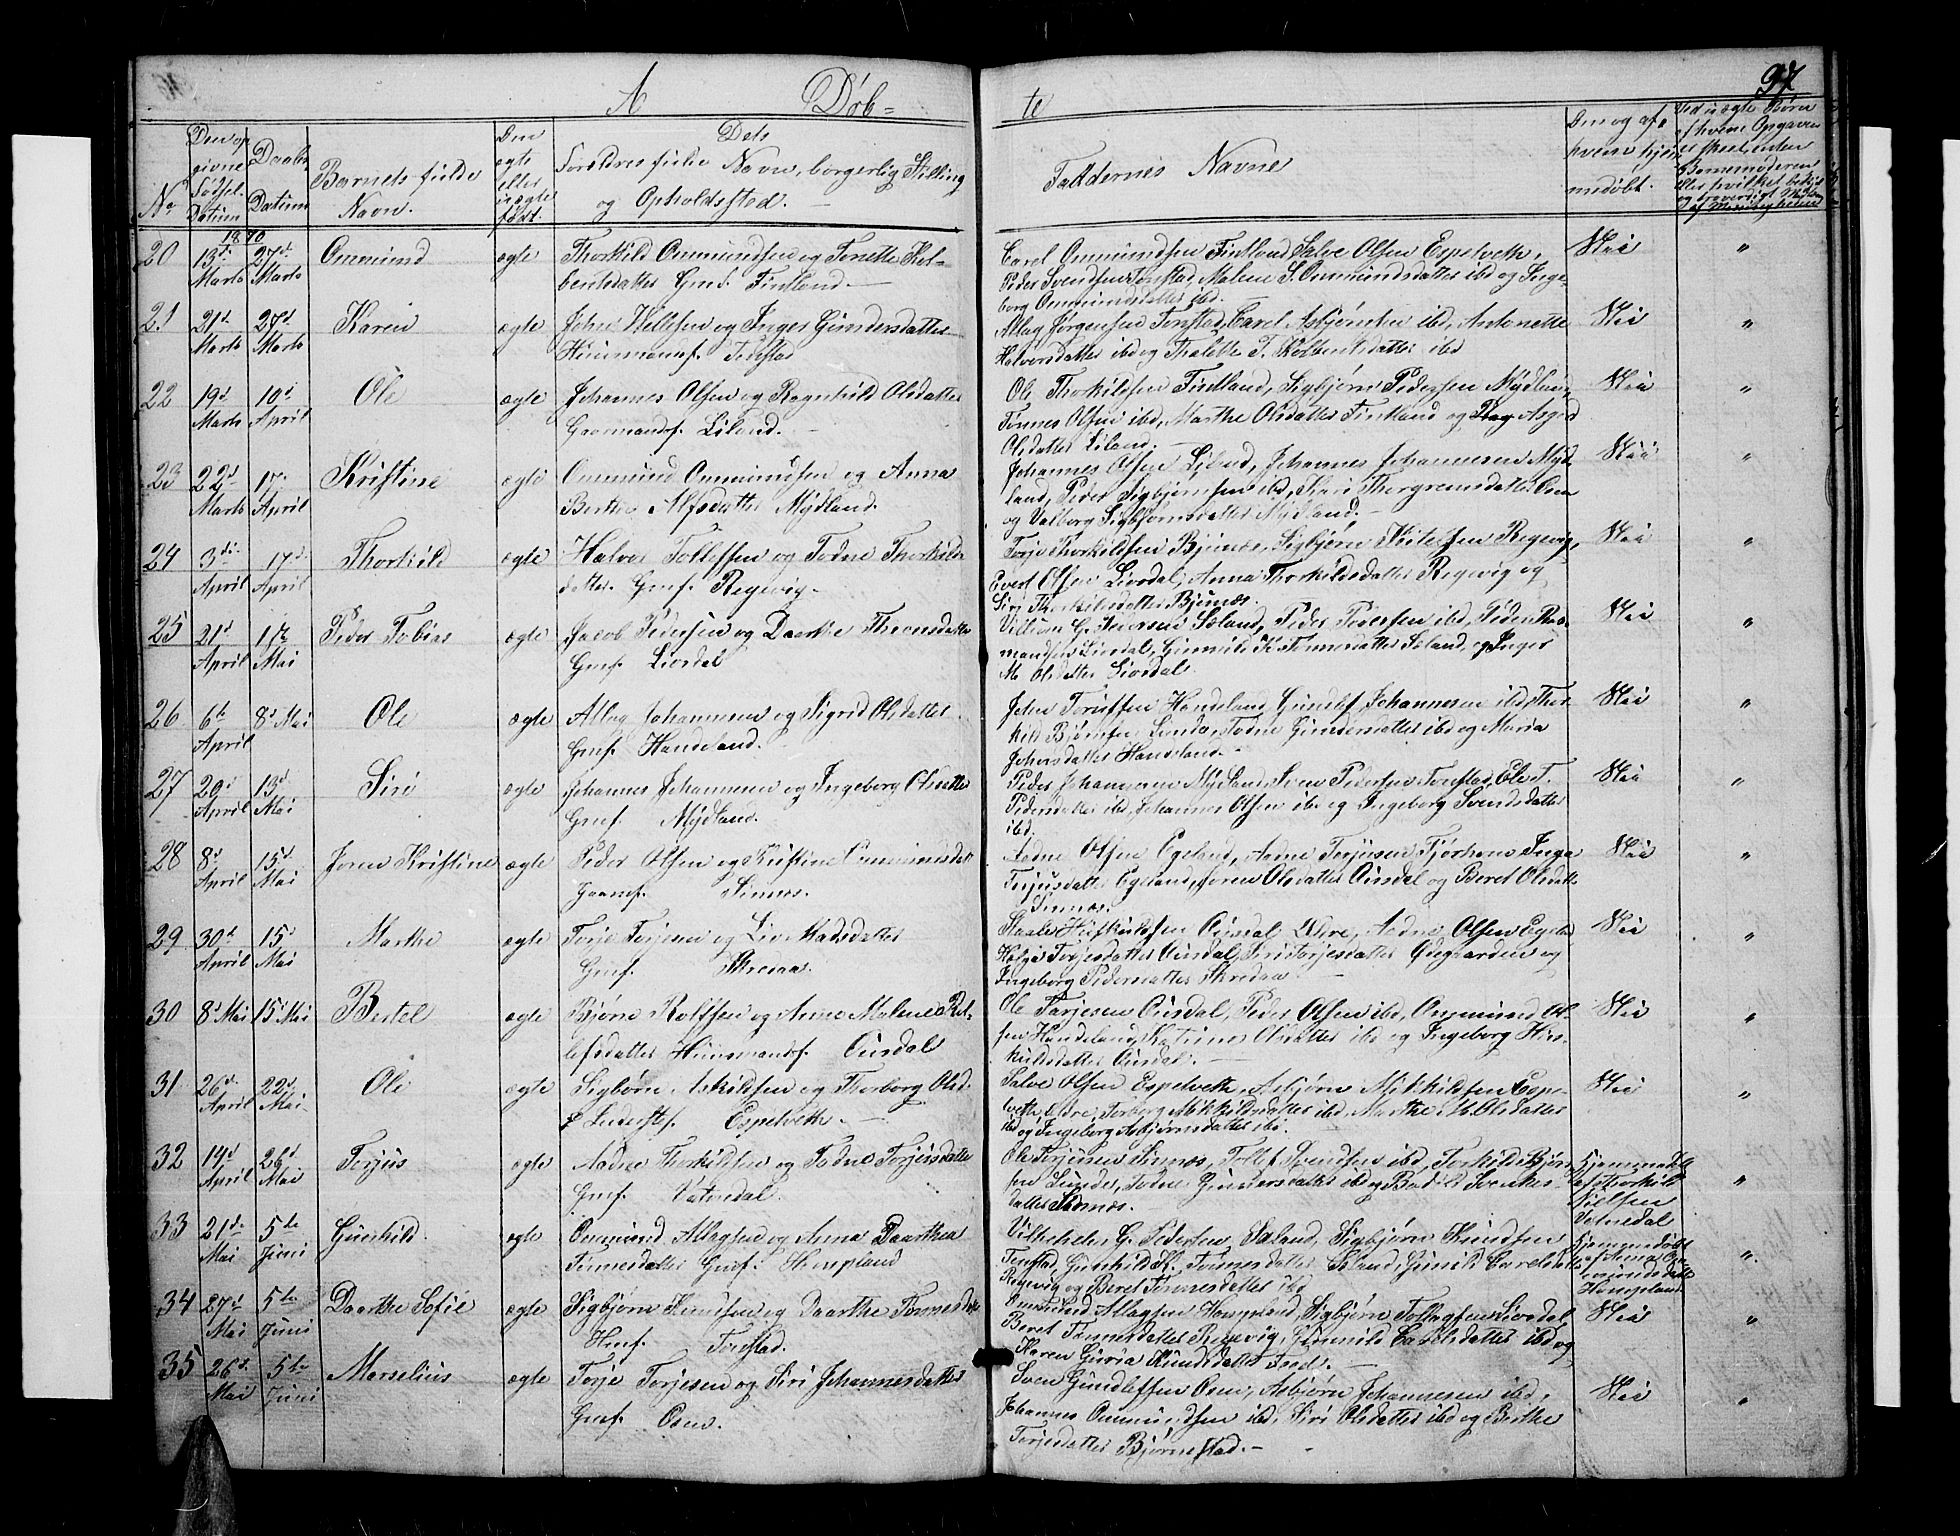 A Døb- te 97
No
Den opgivne Fødsel Datum
Daabs Datum
Barnets fulde Navn.
Om ægte eller uægte født.
Dets Forældres fulde Navn, borgerlig Stilling og Opholdssted.
Faddernes Navne
Om og af hvem hjemmedøbt.
Ved uægte Børn af hvem Opgaven er skeet, enten Barnemoderen eller
1870
20 13d Marts 27d Marts Ommund ægte Thorkild Ommundsen og Tonette Kol-
bentsdatter Gmf. Fintland.
Carel Ommundsen Fintland, Salve Olsen Espetveth,
Peder Svendsen Tonstad, Malene S. Ommundsdatter ibd og Inge-
borg Ommundsdatter ibd.
Nei "
21 21d Marts 27d Marts Karen ægte John Hellesen og Inger Gundersdatter
Huusmandsf. Tonstad
Atlag Jørgensen Tonstad, Carel Asbjørnsen ibd, Antonette
Halvorsdatter ibd og Thalette T. Kolbentsdatter ibd
Nei "
22 19d Marts 10d April Ole ægte Johannes Olsen og Ragnhild Olsdatter
Gaarmandsf. Liland.
Ole Thorkildsen Fintland, Sigbjørn Pedersen Mydland,
Tønnes Olsen ibd, Marthe Olsdatter Fintland og Asgerd
Olsdatter Liland.
Nei "
23 22d Marts 17. April Kristine ægte Ommund Ommundsen og Anna
Berthe Alfsdatter Mydland.
Johannes Olsen Liland, Johannes Johannesen Myd-
land, Peder Sigbjørnsen ibd, Kari Thorgrimsdatter Osen
og Valborg Sigbjørnsdatter Mydland.
Nei "
24 3die April 17d April Thorkild ægte Halvor Tollefsen og Todne Thorkilds
datter Gmf. Regevig.
Torje Thorkildsen Bjunes, Sigbjørn Ketelsen Regevig,
Evert Olsen Liordal, Anna Thorkildsdatter Regevig og
Siri Thorkildsdatter Bjunæs.
Nei "
25 21d April 17 Mai Peder Tobias ægte Jacob Pedersen og Daarthe Theresdatter
Gmf. Liordal
Villum G. Pedersen Søland, Peder Pedersen ibd, Peder
mandsen Liordal, Gunnild K. Tønnesdatter Søland, og Inger
M. Olsdatter Liordal
Nei "
26 6te April 8d Mai Ole ægte Atlag Johannesen og Sigrid Olsdatter
Gmf. Handeland.
John Torisen Handeland, Gundlef Johannesen ibd, Thor-
kild Bjørnsen Lunde, Todne Gundersdatter ibd og Maria
Johnsdatter Handeland.
Nei "
27 20d April 13d Mai Siri ægte Johannes Johannesen og Ingeborg Olsdatter
Gmf. Mydland.
Peder Johannesen Mydland, Sven Pedersen Tonstad,
Pedersdatter ibd, Johannes Olsen ibd og Ingeborg Svendsdatter
ibd.
Nei "
28 8d April 15d Mai Joren Kristine ægte Peder Olsen og Kristine Ommundsdatt
Gaamf. Sinnes.
Aadne Olsen Egeland, Aadne Terjusen Fjorhom, Inga
Terjusdatter Egeland, Joren Olsdatter Ousdal og Beret Olsdatt
Sinnæs.
Nei "
29 30d April 15d Mai Marthe ægte Torje Torjesen og Liv Madsdatter
Gmf. Skredaa.
Staale Ousdal Øvre, Aadne Olsen Egela
Helga Torjesdatter Ousdal, Siri Torjesdatter Ødegaarden og
Ingeborg Pedersdatter Skredaa
Nei "
30 8d Mai 15d Mai Bertel ægte Bjørn Rolfsen og Anne Malene Rol-
lefsdatter Huusmandsf. Ousdal
Ole Tarjesen Ousdal, Peder Olsen ibd, Ommund Ol-
sen Handeland, Katrine Olsdatter ibd og Ingeborg Høs-
kuldsdatter Ousdal.
Nei "
31 26d April 22d Mai Ole ægte Sigbørn Askildsen og Thorborg Olsd.
Espetveth.
Salve Olsen Espetveth, Asbjørn Mikkildsen Espe-
tveth Øvre, Torborg Mikkildsdatter ibd, Marthe M. Olsdatter
ibd og Ingeborg Asbjørnsdatter ibd.
Nei "
32 14d April 26d Mai Torjus ægte Aadne Thorkildsen og Todne Torjusdatter
Gmf. Vatnedal.
Ole Torjusen Sinnæs, Tollef Svendsen ibd, Torkild Bjørn
sen Lunde, Todne Gundersdatter ibd og Bodild Svends-
datter Sinnæs.
Hjemmedøbt af Thorkild Nielsen Vatnedal "
33 21de Mai 5te Juni Gunhild. ægte Ommund Atlagsen og Anna Daarthea
Tønnesdatter Gmf. Hompland
Vilhelm G. Pedersen Søland, Sigbjørn Knudsen
Tonstad, Gunhild K. Tønnesdatter Søland, Gunild Carelsdatt
Regevig og Beret Tønnesdatter ibd
Hjemmedøbt af Anna Ommundsdatter Hompland "
34 27d Mai 5te Juni Daarthe Sofie ægte Sigbjørn Knudsen og Daarthe Tønnesdatt
Hmf. Tonstad.
Ommund Atlagsen Hompland, Sigbjørn Tollagsen Liordal
Beret Tønnesdatter Regevig, Gunnild Carelsdatter ibd og
Karen Guria Knudsdatter
Nei "
35 26d Mai 5te Juni Marselius ægte Torje Torjesen og Siri Johannesdatter
Gmf. Osen.
Sven Gundlefsen Osen, Asbjørn Johannesen ibd,
Johannes Ommundsen ibd, Siri Olsdatter ibd og Berthe
Torjesdatter Bjørnestad.
Nei "